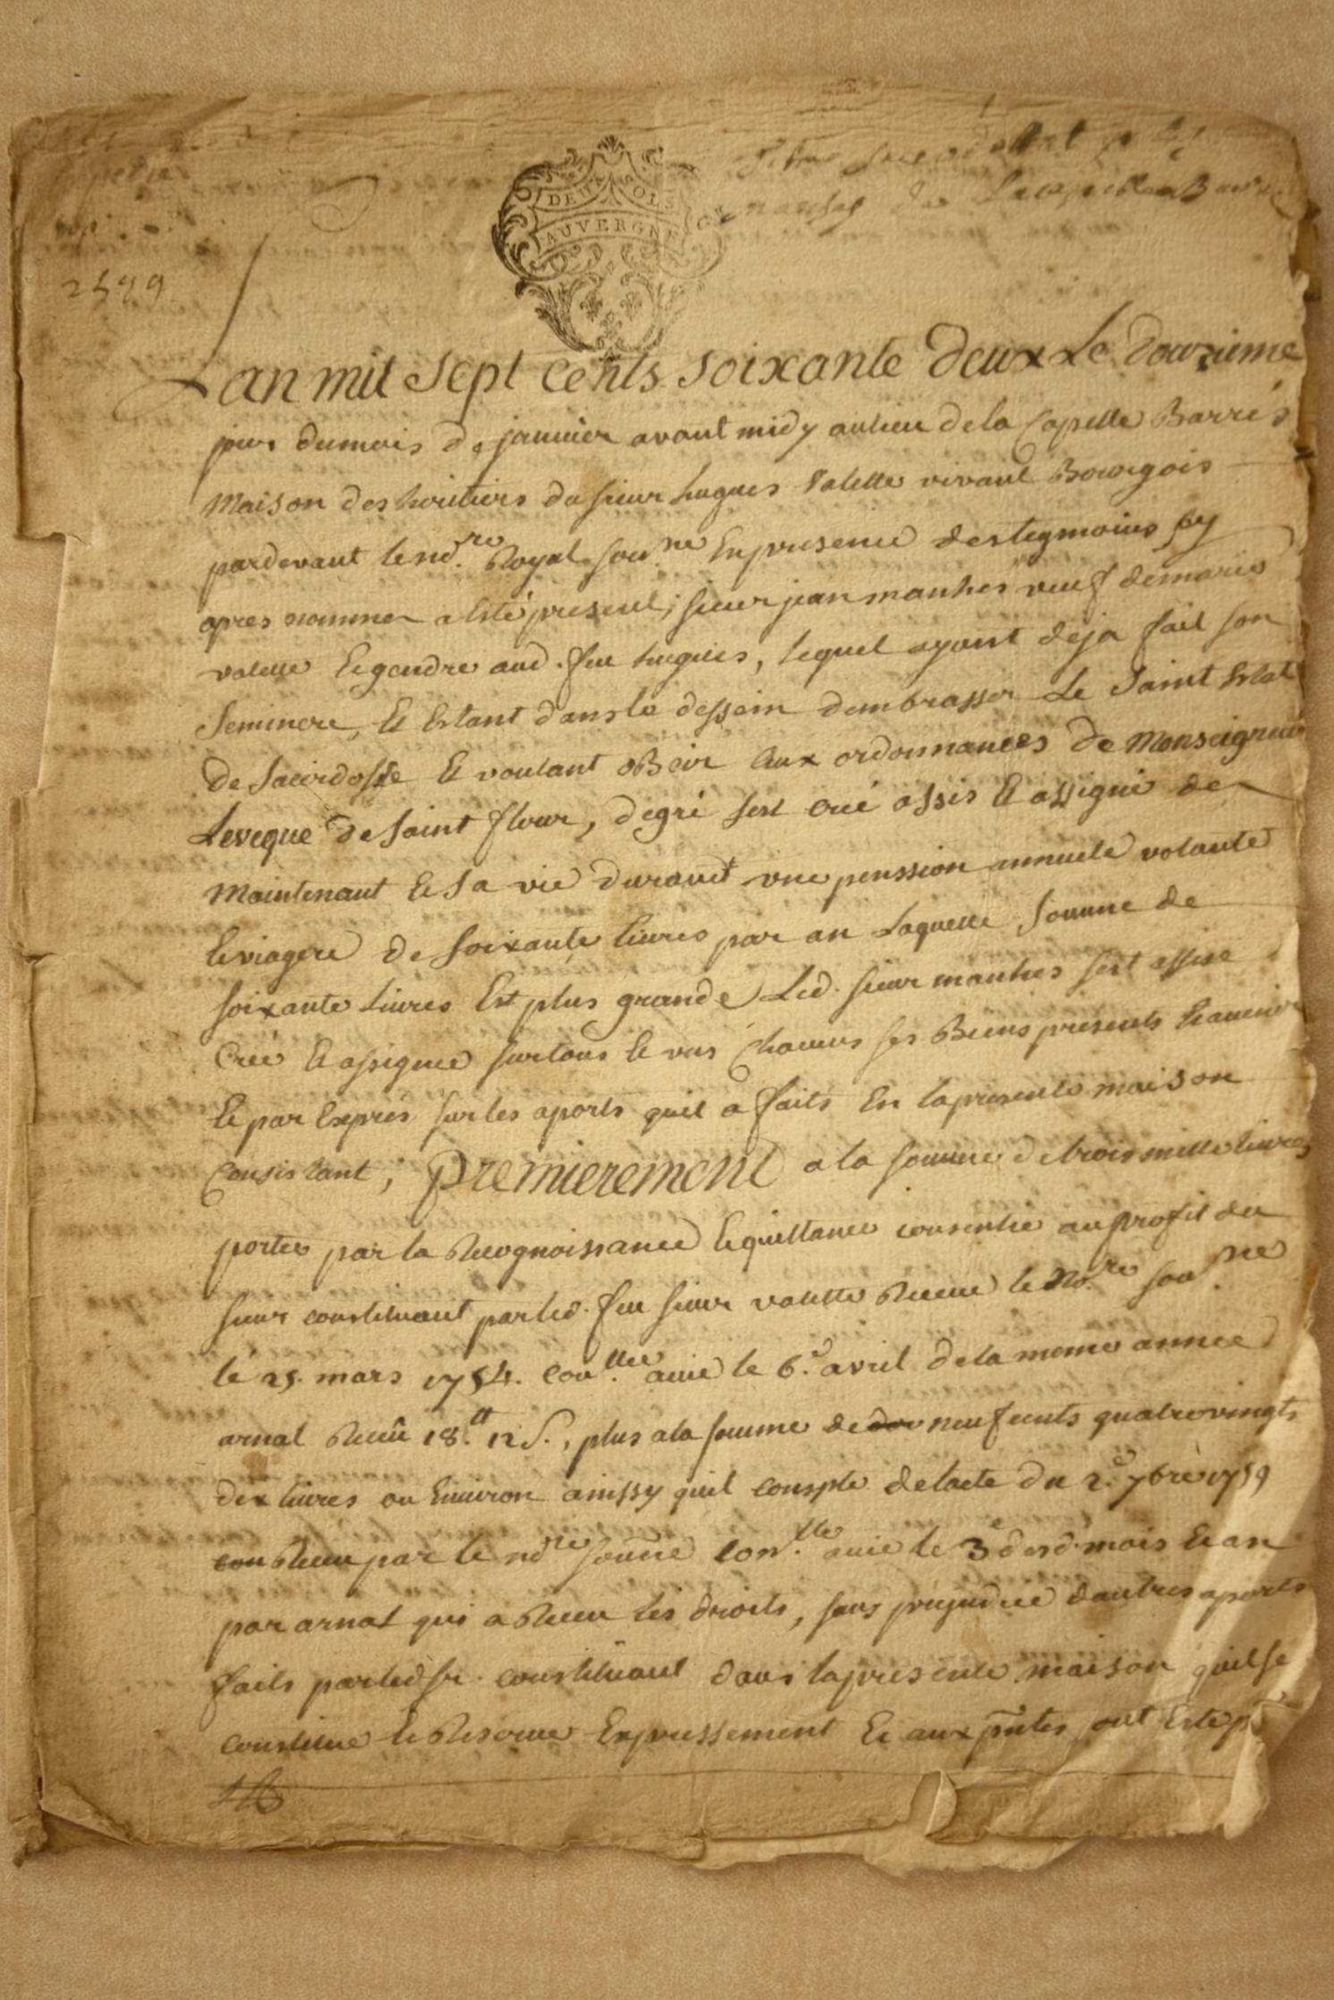 DEUX SOLS
AUVERGNE
2599
Lan mil sept cents soixante deux Le douzieme
jour dumois de janvier avant midy au lieu de la Capelle Barrés
Maison des heritiers du sieur hugues Valette vivant Bourgois
pardevant le no.re Royal sou.ne En presence des tegmoins sy
apres nommer a Esté present; sieur jean manhes veuf de marie
valette & gendre aud. feu hugues, lequel ayant deja fait son
Seminere, & Estant dans le dessein dembrasser Le Saint Estat
De Sacerdosse & voulant oBeir Aux ordonnances De Monseigneur
Leveque De Saint flour, de gré sest creé assis & assigné de
Maintenant & Sa vie Durant une penssion annuele volante
& viagere De Soixante livres par an Laquelle Somme de
soixante Livres Est plus grande Led. sieur manhes sest assise
Creé & assignee sur tous & uns Chacuns ses Biens presents & avenir
& par Exprés sur les aports quil a faits En la presente maison
Consistant, Premierement a la somme de trois mille livres
portee par la Recognoissance & quittance consentie au profit du
sieur constituant par led. feu sieur valette Receue le No.re sou.ne
le 25. mars 1754. con.llee avie le 6.e avril de la meme année
arnal Receu 18.tt 12 S., plus a la somme de neuf cents quatre vingts
dix livres ou Environ ainssy quil compte de lacte du 2.e 7bre 1759
Receu par le nore soune con.lle avie le 3e desd. mois & an
par arnal qui a Receu les droits, sans prejudice dautres aports
faits par led sr. constituant dans la presente maison quil se
constitue & Reserve Expressement Et aux pntes ont Esté pt